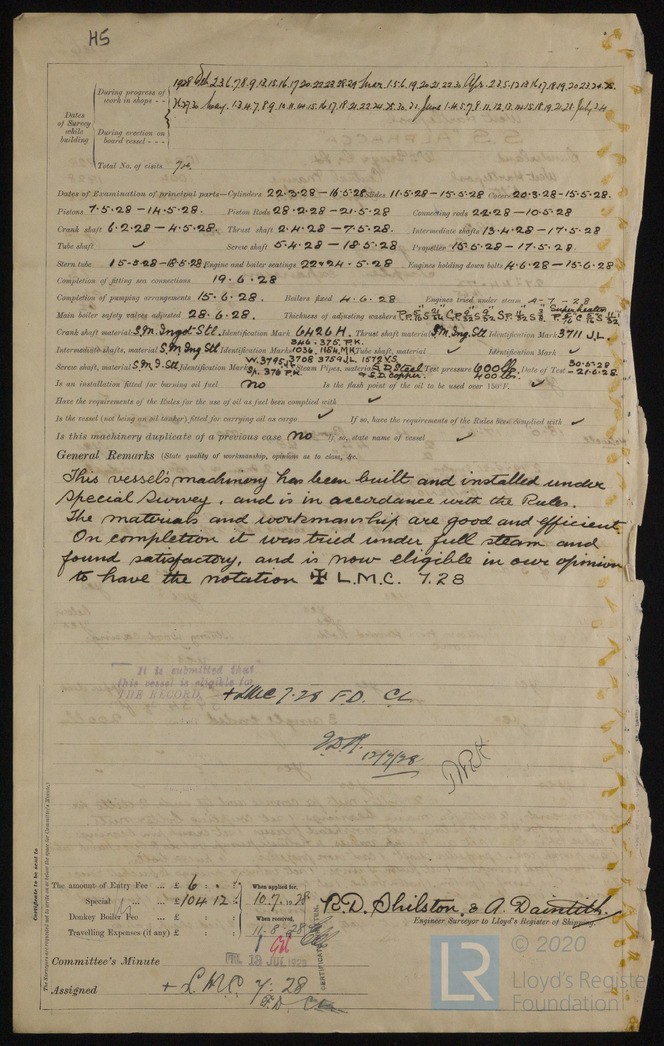 HS
During progress of work in shops - -
1928 Feb. 2.3.6.7.8.9.13.15.16.17.20.22.23.28.29 Mar. 1.5.6.19.20.21.22.30 Apr. 2.3.5.12.13.16.17.18.19.20.23.24.25.
26.27.30 May. 1.3.4.7.8.9.10.11.14.15.16.17.18.21.22.24.25.30.31 June 1.4.5.7.8.11.12.13.14.15.18.19.21.28 July 3.4
Dates of Survey while building
During erection on board vessel - - -
Total No. of visits
Dates of Examination of principal parts—Cylinders 22.3.28 – 16.5.28 Slides 11.5.28 – 15.5.28 Covers 20.3.28 – 15.5.28.
Pistons 7.5.28 – 14.5.28. Piston Rods 28.2.28 – 21.5.28 Connecting rods 22.2.28 – 10.5.28
Crank shaft 6.2.28 – 4.5.28. Thrust shaft 2.4.28 – 7.5.28. Intermediate shafts 13.4.28 – 17.5.28
Tube shaft ✓ Screw shaft 5.4.28 – 18.5.28 Propeller 15.5.28 – 17.5.28.
Stern tube 15.5.28 – 18.5.28 Engine and boiler seatings 22 & 24.5.28 Engines holding down bolts 4.6.28 – 15.6.28
Completion of fitting sea connections 19.6.28
Completion of pumping arrangements 15.6.28. Boilers fixed 4.6.28 Engines tried under steam 4-7-28
Main boiler safety valves adjusted 28.6.28. Thickness of adjusting washers
Superheater
Crank shaft material S.M. Ingot Stl. Identification Mark 6426 H. Thrust shaft material S.M. Ing. Stl Identification Mark 3711 J.L.
346. 375. P.K.
Intermediate shafts, material S.M Ing Stl Identification Marks 1036, 1154, M.K. Tube shaft, material ✓ Identification Mark ✓
W.3795, 3708 3759 J.L. 1572 V.S.
Screw shaft, material S.M. I. Stl, Identification Mark Sp. 376 P.K. Steam Pipes, material S.D Steel & S.D Copper. Test pressure 600 lb. 400 lb. Date of Test 30.5.28 – 21.6.28.
Is an installation fitted for burning oil fuel no Is the flash point of the oil to be used over 150°F. ✓
Have the requirements of the Rules for the use of oil as fuel been complied with ✓
Is the vessel (not being an oil tanker) fitted for carrying oil as cargo ✓ If so, have the requirements of the Rules been complied with ✓
Is this machinery duplicate of a previous case no If so, state name of vessel ✓
General Remarks (State quality of workmanship, opinions as to class, &c.
This vessel's machinery has been built and installed under
Special Survey, and is in accordance with the Rules.
The materials and workmanship are good and efficient.
On completion it was tried under full steam and
found satisfactory, and is now eligible in our opinion
to have the notation ✠ L.M.C. 7.28
It is submitted that
this vessel is eligible for
THE RECORD. + LMC 7.28 F.D. CL
12/7/28
The amount of Entry Fee ... £ 6 : . :
Special ... £ 104.12 :
Donkey Boiler Fee ... £ : :
Travelling Expenses (if any) £ : :
When applied for,
10.7.1928
When received,
11.8.1928
R.D. Shilston, & A. Dainteth.
Engineer Surveyor to Lloyd's Register of Shipping.
Committee's Minute FRI. 13 JUL 1928
Assigned + L.M.C. 7.28
F.D. CL
Certificate to be sent to
The Surveyors are requested not to write on or below the space for Committee's Minute.
CERTIFICATE WRITTEN.
© 2020
LR
Lloyd's Register
Foundation